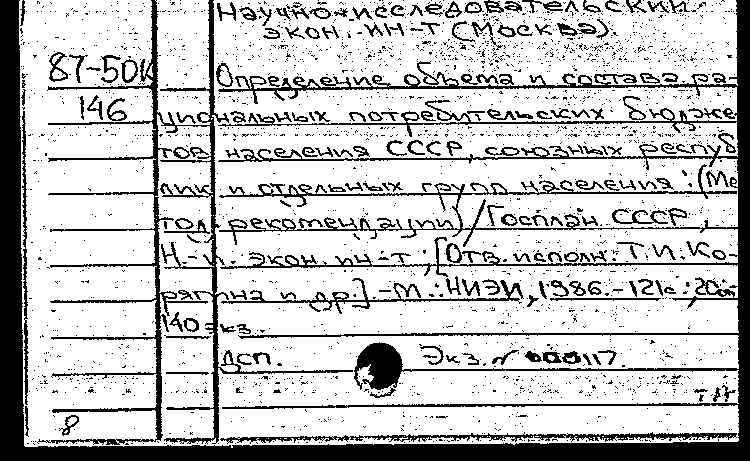 Научно-исследовательский
экон. ин-т (Москва).
87-50К Определение объема и состава ра-
146 циональных потребительских бюдже
тов населения СССР, союзных респуб
лик и отдельных групп населения : (Ме
тод. рекомендации) / Госплан СССР,
Н.-и. экон. ин-т ; [Отв. исполн. Т.И. Ко-
рягина и др.] -М.: НИЭИ, 1986.-121с ; 20см
140 экз.
ДСП. Экз. № 000117
8